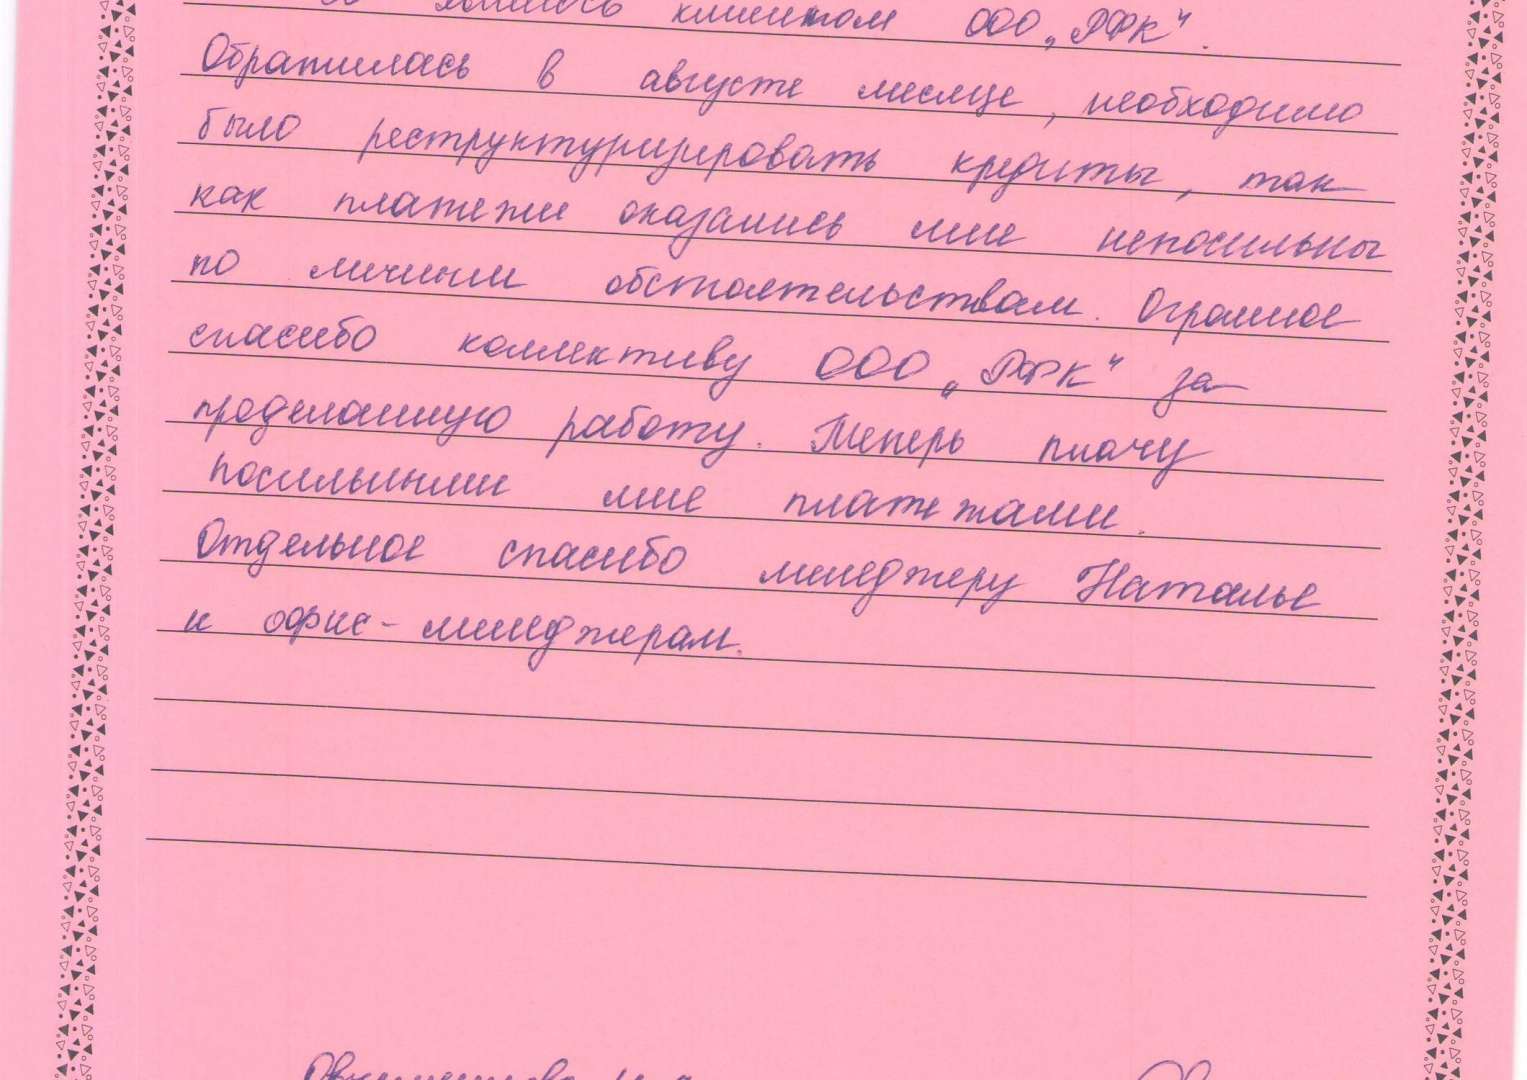 являюсь клиентом ООО „РФК“.
Обратилась в августе месяце, необходимо
было реструктуризировать кредиты, так
как платежи оказались мне непосильны
по личным обстоятельствам. Огромное
спасибо коллективу ООО „РФК“ за
проделанную работу. Теперь плачу
посильными мне платежами.
Отдельное спасибо менеджеру Наталье
и офис-менеджерам.